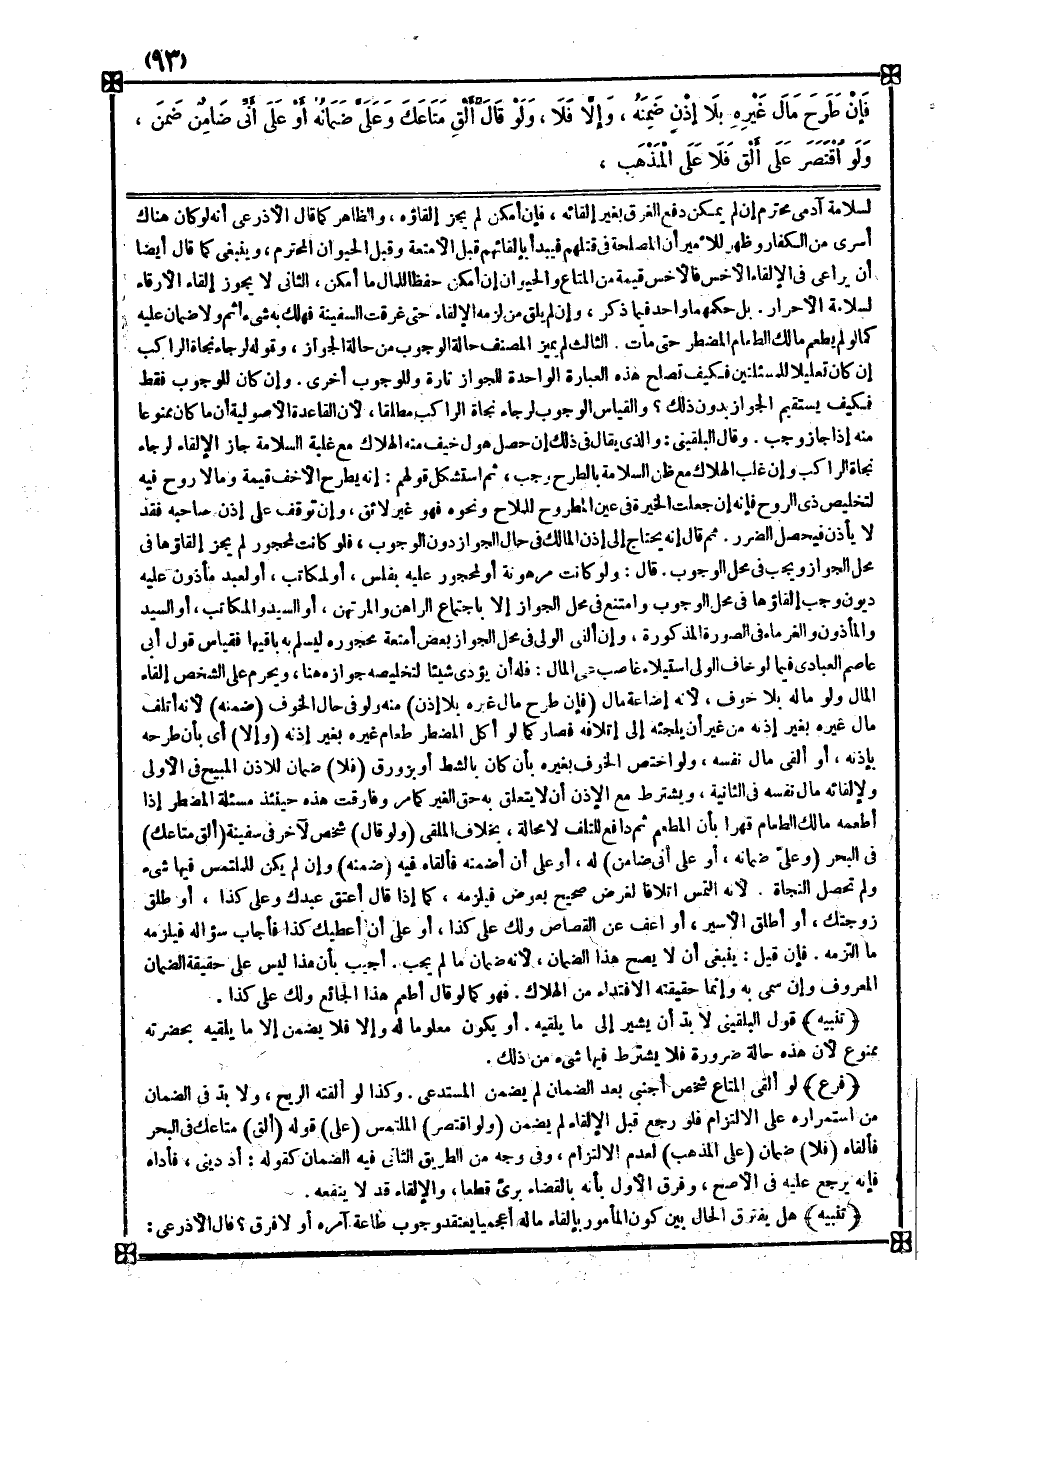 (٩٣)
فَإِنْ طَرَحَ مَالَ غَيْرِهِ بِلَا إِذْنٍ ضَمِنَهُ ، وَإِلَّا فَلَا ، وَلَوْ قَالَ أَلْقِ مَتَاعَكَ وَعَلَىَّ ضَمَانُهُ أَوْ عَلَى أَنِّى ضَامِنٌ ضَمِنَ ،
وَلَوِ اقْتَصَرَ عَلَى أَلْقِ فَلَا عَلَى الْمَذْهَبِ ،
لسلامة آدمى محترم إن لم يمكن دفع الغرق بغير إلقائه ، فإن أمكن لم يجز إلقاؤه ، والظاهر كما قال الأذرعى أنه لو كان هناك
أسرى من الكفار وظهر للأمير أن المصلحة فى قتلهم فيبدأ بإلقائهم قبل الأمتعة وقبل الحيوان المحترم ، وينبغى كما قال أيضا
أن يراعى فى الإلقاء الأخس فالأخس قيمة من المتاع والحيوان إن أمكن حفظا للمال ما أمكن ، الثانى لا يجوز إلقاء الأرقاء
لسلامة الأحرار . بل حكمهما واحد فيما ذكر ، وإن لم يلق من لزمه الإلقاء حتى غرقت السفينة فهلك به شىء أثم ولا ضمان عليه
كما لو لم يطعم مالك الطعام المضطر حتى مات . الثالث لم يميز المصنف حالة الوجوب من حالة الجواز ، وقوله لرجاء نجاة الراكب
إن كان تعليلا للمسئلتين فكيف تصلح هذه العبارة الواحدة للجواز تارة وللوجوب أخرى . وإن كان للوجوب فقط
فكيف يستقيم الجواز بدون ذلك ؟ والقياس الوجوب لرجاء نجاة الراكب مطلقا ، لأن القاعدة الأصولية أن ما كان ممنوعا
منه إذا جاز وجب . وقال البلقينى : والذى يقال فى ذلك إن حصل هول خيف منه الهلاك مع غلبة السلامة جاز الإلقاء لرجاء
نجاة الراكب وإن غلب الهلاك مع ظن السلامة بالطرح وجب ، ثم استشكل قولهم : إنه يطرح الأخف قيمة وما لا روح فيه
لتخليص ذى الروح فإنه إن جعلت الخيرة فى عين المطروح للملاح ونحوه فهو غير لائق ، وإن توقف على إذن صاحبه فقد
لا يأذن فيحصل الضرر . ثم قال إنه يحتاج إلى إذن المالك فى حال الجواز دون الوجوب ، فلو كانت لمحجور لم يجز إلقاؤها فى
محل الجواز ويجب فى محل الوجوب . قال : ولو كانت مرهونة أو لمحجور عليه بفلس ، أو لمكاتب ، أو لعبد مأذون عليه
ديون وجب إلقاؤها فى محل الوجوب وامتنع فى محل الجواز إلا باجتماع الراهن والمرتهن ، أو السيد والمكاتب ، أو السيد
والمأذون والغرماء فى الصورة المذكورة ، وإن ألقى الولى فى محل الجواز بعض أمتعة محجوره ليسلم به باقيها فقياس قول أبى
عاصم العبادى فيما لو خاف الولى استيلاء غاصب على المال : فله أن يؤدى شيئا لتخليصه جوازه هنا ، ويحرم على الشخص إلقاء
المال ولو ماله بلا خوف ، لأنه إضاعة مال (فإن طرح مال غيره بلا إذن) منه ولو فى حال الخوف (ضمنه) لأنه أتلف
مال غيره بغير إذنه من غير أن يلجئه إلى إتلافه فصار كما لو أكل المضطر طعام غيره بغير إذنه (وإلا) أى بأن طرحه
بإذنه ، أو ألقى مال نفسه ، ولو اختص الخوف بغيره بأن كان بالشط أو بزورق (فلا) ضمان للاذن المبيح فى الأولى
ولإلقائه مال نفسه فى الثانية ، ويشترط مع الإذن أن لا يتعلق به حق الغير كما مر وفارقت هذه حينئذ مسئلة المضطر إذا
أطعمه مالك الطعام قهرا بأن المطعم ثم دافع للتلف لا محالة ، بخلاف الملقى (ولو قال) شخص لآخر فى سفينة (ألق متاعك)
فى البحر (وعلىّ ضمانه ، أو على أنى ضامن) له ، أو على أن أضمنه فألقاه فيه (ضمنه) وإن لم يكن للملتمس فيها شىء
ولم تحصل النجاة . لأنه التمس اتلافا لغرض صحيح بعوض فيلزمه ، كما إذا قال أعتق عبدك وعلى كذا ، أو طلق
زوجتك ، أو أطلق الأسير ، أو اعف عن القصاص ولك على كذا ، أو على أن أعطيك كذا فأجاب سؤاله فيلزمه
ما التزمه . فإن قيل : ينبغى أن لا يصح هذا الضمان ، لأنه ضمان ما لم يجب . أجيب بأن هذا ليس على حقيقة الضمان
المعروف وإن سمى به وإنما حقيقته الافتداء من الهلاك . فهو كما لو قال أطعم هذا الجائع ولك على كذا .
(تنبيه) قول البلقينى لا بد أن يشير إلى ما يلقيه . أو يكون معلوما له وإلا فلا يضمن إلا ما يلقيه بحضرته
ممنوع لأن هذه حالة ضرورة فلا يشترط فيها شىء من ذلك .
(فرع) لو ألقى المتاع شخص أجنبى بعد الضمان لم يضمن المستدعى . وكذا لو ألقته الريح ، ولا بد فى الضمان
من استمراره على الالتزام فلو رجع قبل الإلقاء لم يضمن (ولو اقتصر) الملتمس (على) قوله (ألق) متاعك فى البحر
فألقاه (فلا) ضمان (على المذهب) لعدم الالتزام ، وفى وجه من الطريق الثانى فيه الضمان كقوله : أد دينى ، فأداه
فإنه يرجع عليه فى الأصح ، وفرق الأول بأنه بالقضاء برئ قطعا ، والإلقاء قد لا ينفعه .
(تنبيه) هل يفترق الحال بين كون المأمور بإلقاء ماله أعجميا يعتقد وجوب طاعة آمره أو لا فرق ؟ قال الأذرعى :